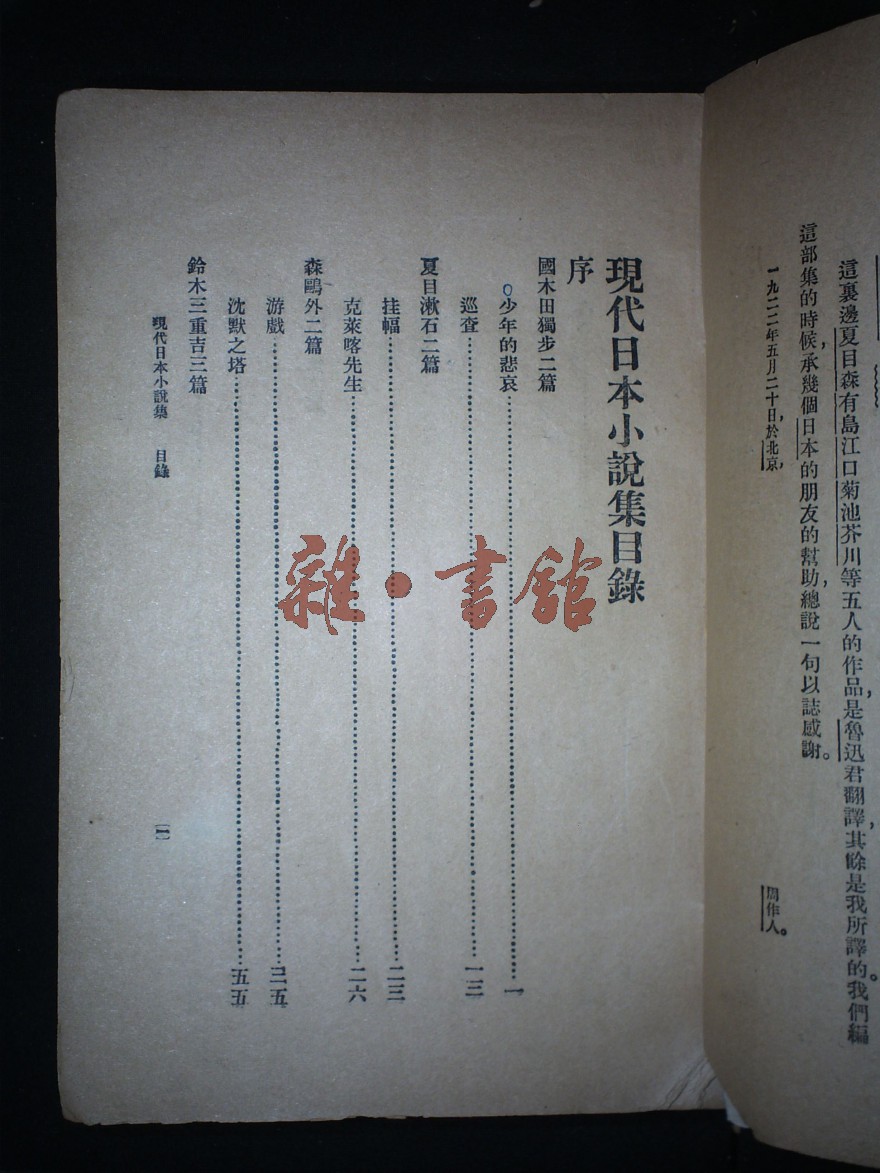 這裏邊夏目森有島江口菊池芥川等五人的作品,是魯迅君翻譯,其餘是我所譯的。我們編
這部集的時候,承幾個日本的朋友的幫助,總說一句以誌感謝。
一九二二年五月二十日,於北京,
周作人。
現代日本小說集目錄
序
國木田獨步二篇
少年的悲哀……一
巡查……一三
夏目漱石二篇
挂幅……二三
克萊喀先生……二六
森鷗外二篇
游戲……三五
沈默之塔……五五
鈴木三重吉三篇
現代日本小說集 目錄
雜·書館